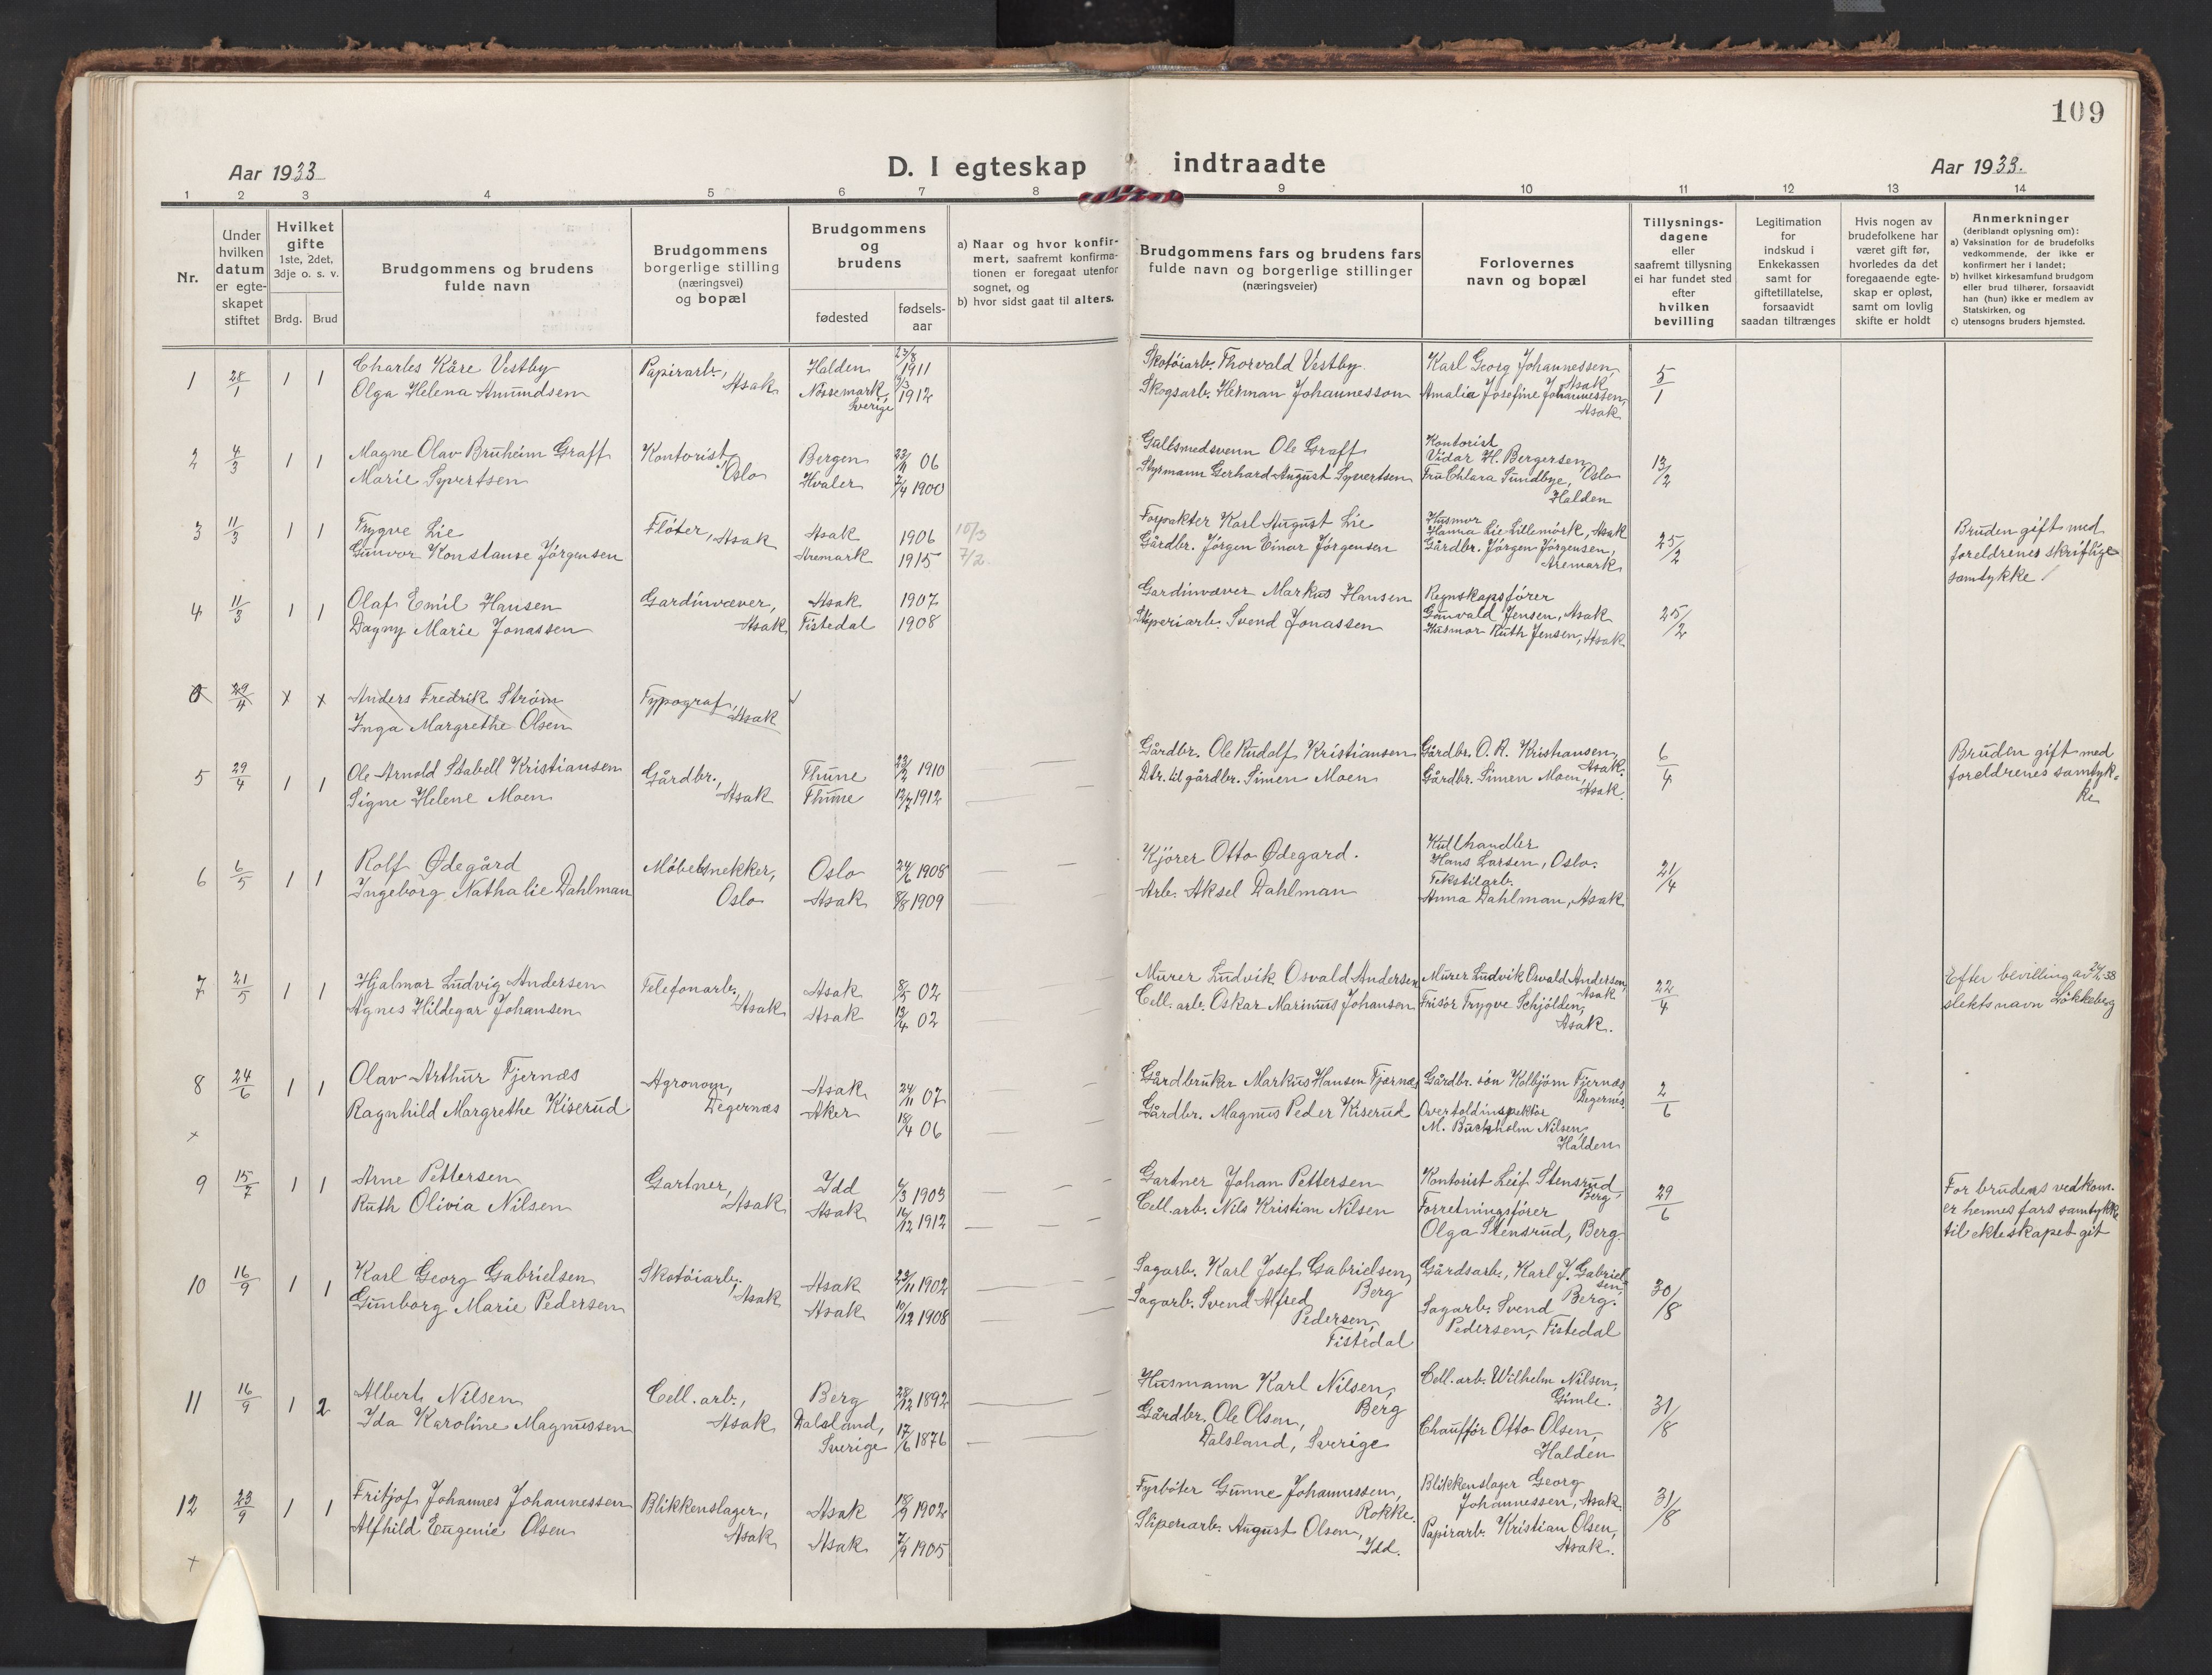 109
Aar 1933
D. I egteskap indtraadte
Aar 1933.
1 2 3 4 5 6 7 8 9 10 11 12 13 14
Nr.
Under hvilken datum er egte-skapet stiftet
Hvilket gifte 1ste, 2det, 3dje o. s. v.
Brdg. Brud
Brudgommens og brudens fulde navn
Brudgommens borgerlige stilling (næringsvei) og bopæl
Brudgommens og brudens
fødested
fødsels-aar
a) Naar og hvor konfir-mert, saafremt konfirma-tionen er foregaat utenfor sognet, og
b) hvor sidst gaat til alters.
Brudgommens fars og brudens fars fulde navn og borgerlige stillinger (næringsveier)
Forlovernes navn og bopæl
Tillysnings-dagene eller saafremt tillysning ei har fundet sted efter hvilken bevilling
Legitimation for indskud i Enkekassen samt for giftetillatelse, forsaavidt saadan tiltrænges
Hvis nogen av brudefolkene har været gift før, hvorledes da det foregaaende egte-skap er opløst, samt om lovlig skifte er holdt
Anmerkninger (deriblandt oplysning om):
a) Vaksination for de brudefolks vedkommende, der ikke er konfirmert her i landet;
b) hvilket kirkesamfund brudgom eller brud tilhører, forsaavidt han (hun) ikke er medlem av Statskirken, og
c) utensogns bruders hjemsted.
1 28/1 1 1 Charles Kåre Vestby Papirarb., Asak Halden 23/8 1911 Skotøiarb. Thorvald Vestby Karl Georg Johannessen, Asak 5/1
Olga Helena Amundsen Nössemark, Sverige 1912 Skogsarb. Herman Johannesson Amalia Josefine Johannessen, Asak
2 4/3 1 1 Magne Olav Bruheim Graff Kontorist, Oslo Bergen 06 Gullsmedsvenn Ole Graff Kontorist Vidar H. Bergersen, Oslo 13/2
Marie Syvertsen Hvaler 7/4 1900 Styrmann Gerhard August Syvertsen Fru Chlara Sundbye, Halden
3 11/3 1 1 Trygve Lie Fløter, Asak Asak 1906 10/3 Forpakter Karl August Lie Husmor Hanna Lie Lillemörk, Asak 25/2 Bruden gift med
Gunvor Konstanse Jörgensen Aremark 1915 7/2 Gårdbr. Jörgen Einar Jörgensen Gårdbr. Jörgen Jörgensen, Aremark foreldrenes skriftlige
samtykke
4 11/3 1 1 Olaf Emil Hansen Gardinvæver, Asak Asak 1907 Gardinvæver Markus Hansen Regnskapsfører Gunvald Jensen, Asak 25/2
Dagny Marie Jonassen Tistedal 1908 Sliperiarb. Svend Jonassen Husmor Ruth Jensen, Asak
29/4 x x Anders Fredrik Strøm Typograf, Asak
Inga Margrethe Olsen
5 29/4 1 1 Ole Arnold Stabell Kristiansen Gårdbr., Asak Thune 1910 Gårdbr. Ole Rudolf Kristiansen Gårdbr. O. R. Kristiansen, Asak 6/4 Bruden gift med
Signe Helene Moen Thune 12/7 1912 Dtr. til gårdbr. Simen Moen Gårdbr. Simen Moen, Asak. foreldrenes samtyk-
ke
6 6/5 1 1 Rolf Ødegård Møbelsnekker, Oslo Oslo 24/6 1908 Kjører Otto Ødegard. Kullhandler Hans Larsen, Oslo. 21/4
Ingeborg Nathalie Dahlman Asak 8/8 1909 Arb. Aksel Dahlman Tekstilarb. Anna Dahlman, Asak
7 21/5 1 1 Hjalmar Ludvig Andersen Telefonarb., Asak Asak 8/5 02 Murer Ludvik Osvald Andersen Murer Ludvik Osvald Andersen, Asak 22/4 Efter bevilling av
Agnes Hildegar Johansen Asak 02 Cell. arb. Oskar Marinus Johansen Frisør Trygve Schjölden, Asak. slektsnavn Løkkeberg
8 24/6 1 1 Olav Arthur Tjernæs Agronom, Degernæs Asak 24/11 07 Gårdbruker Markus Hansen Tjærnæs Gårdbr. søn Kolbjørn Tjernæs, Degernes. 2/6
Ragnhild Margrethe Kiserud Aker 18/4 06 Gårdbr. Magnus Peder Kiserud Overtoldinspektør M. Buckholm Nilsen, Halden
x
9 15/7 1 1 Arne Pettersen Gartner, Asak Idd 1903 Gartner Johan Pettersen Kontorist Leif Stensrud, Berg 29/6 For brudens vedkom.
Ruth Olivia Nilsen Asak 16/12 1912 Cell. arb. Nils Kristian Nilsen Forretningsfører Olga Stensrud, Berg. er hennes fars samtykke
til ekteskapet git
10 16/9 1 1 Karl Georg Gabrielsen Skotøiarb., Asak Asak 23/11 1902 Sagarb. Karl Josef Gabrielsen, Berg Gårdsarb., Karl J. Gabrielsen, Berg. 30/8
Gunborg Marie Pedersen Asak 10/12 1908 Sagarb. Svend Alfred Pedersen, Tistedal Sagarb. Svend Pedersen, Tistedal
11 16/9 1 2 Albert Nilsen Cell. arb., Asak Berg 28/12 1892 Husmann Karl Nilsen, Berg Cell. arb. Wilhelm Nilsen, Gimle. 31/8
Ida Karoline Magnussen Dalsland, Sverige 17/6 1876 Gårdbr. Ole Olsen, Dalsland, Sverige Chauffør Otto Olsen, Halden
12 23/9 1 1 Fritjof Johannes Johannessen Blikkenslager, Asak Asak 18/9 1902 Fyrbøter Gunne Johannessen, Rokke. Blikkenslager Georg Johannessen, Asak. 31/8
Alfhild Eugenie Olsen Asak 7/9 1905 Sliperiarb. August Olsen, Idd. Papirarb. Kristian Olsen, Asak.
x